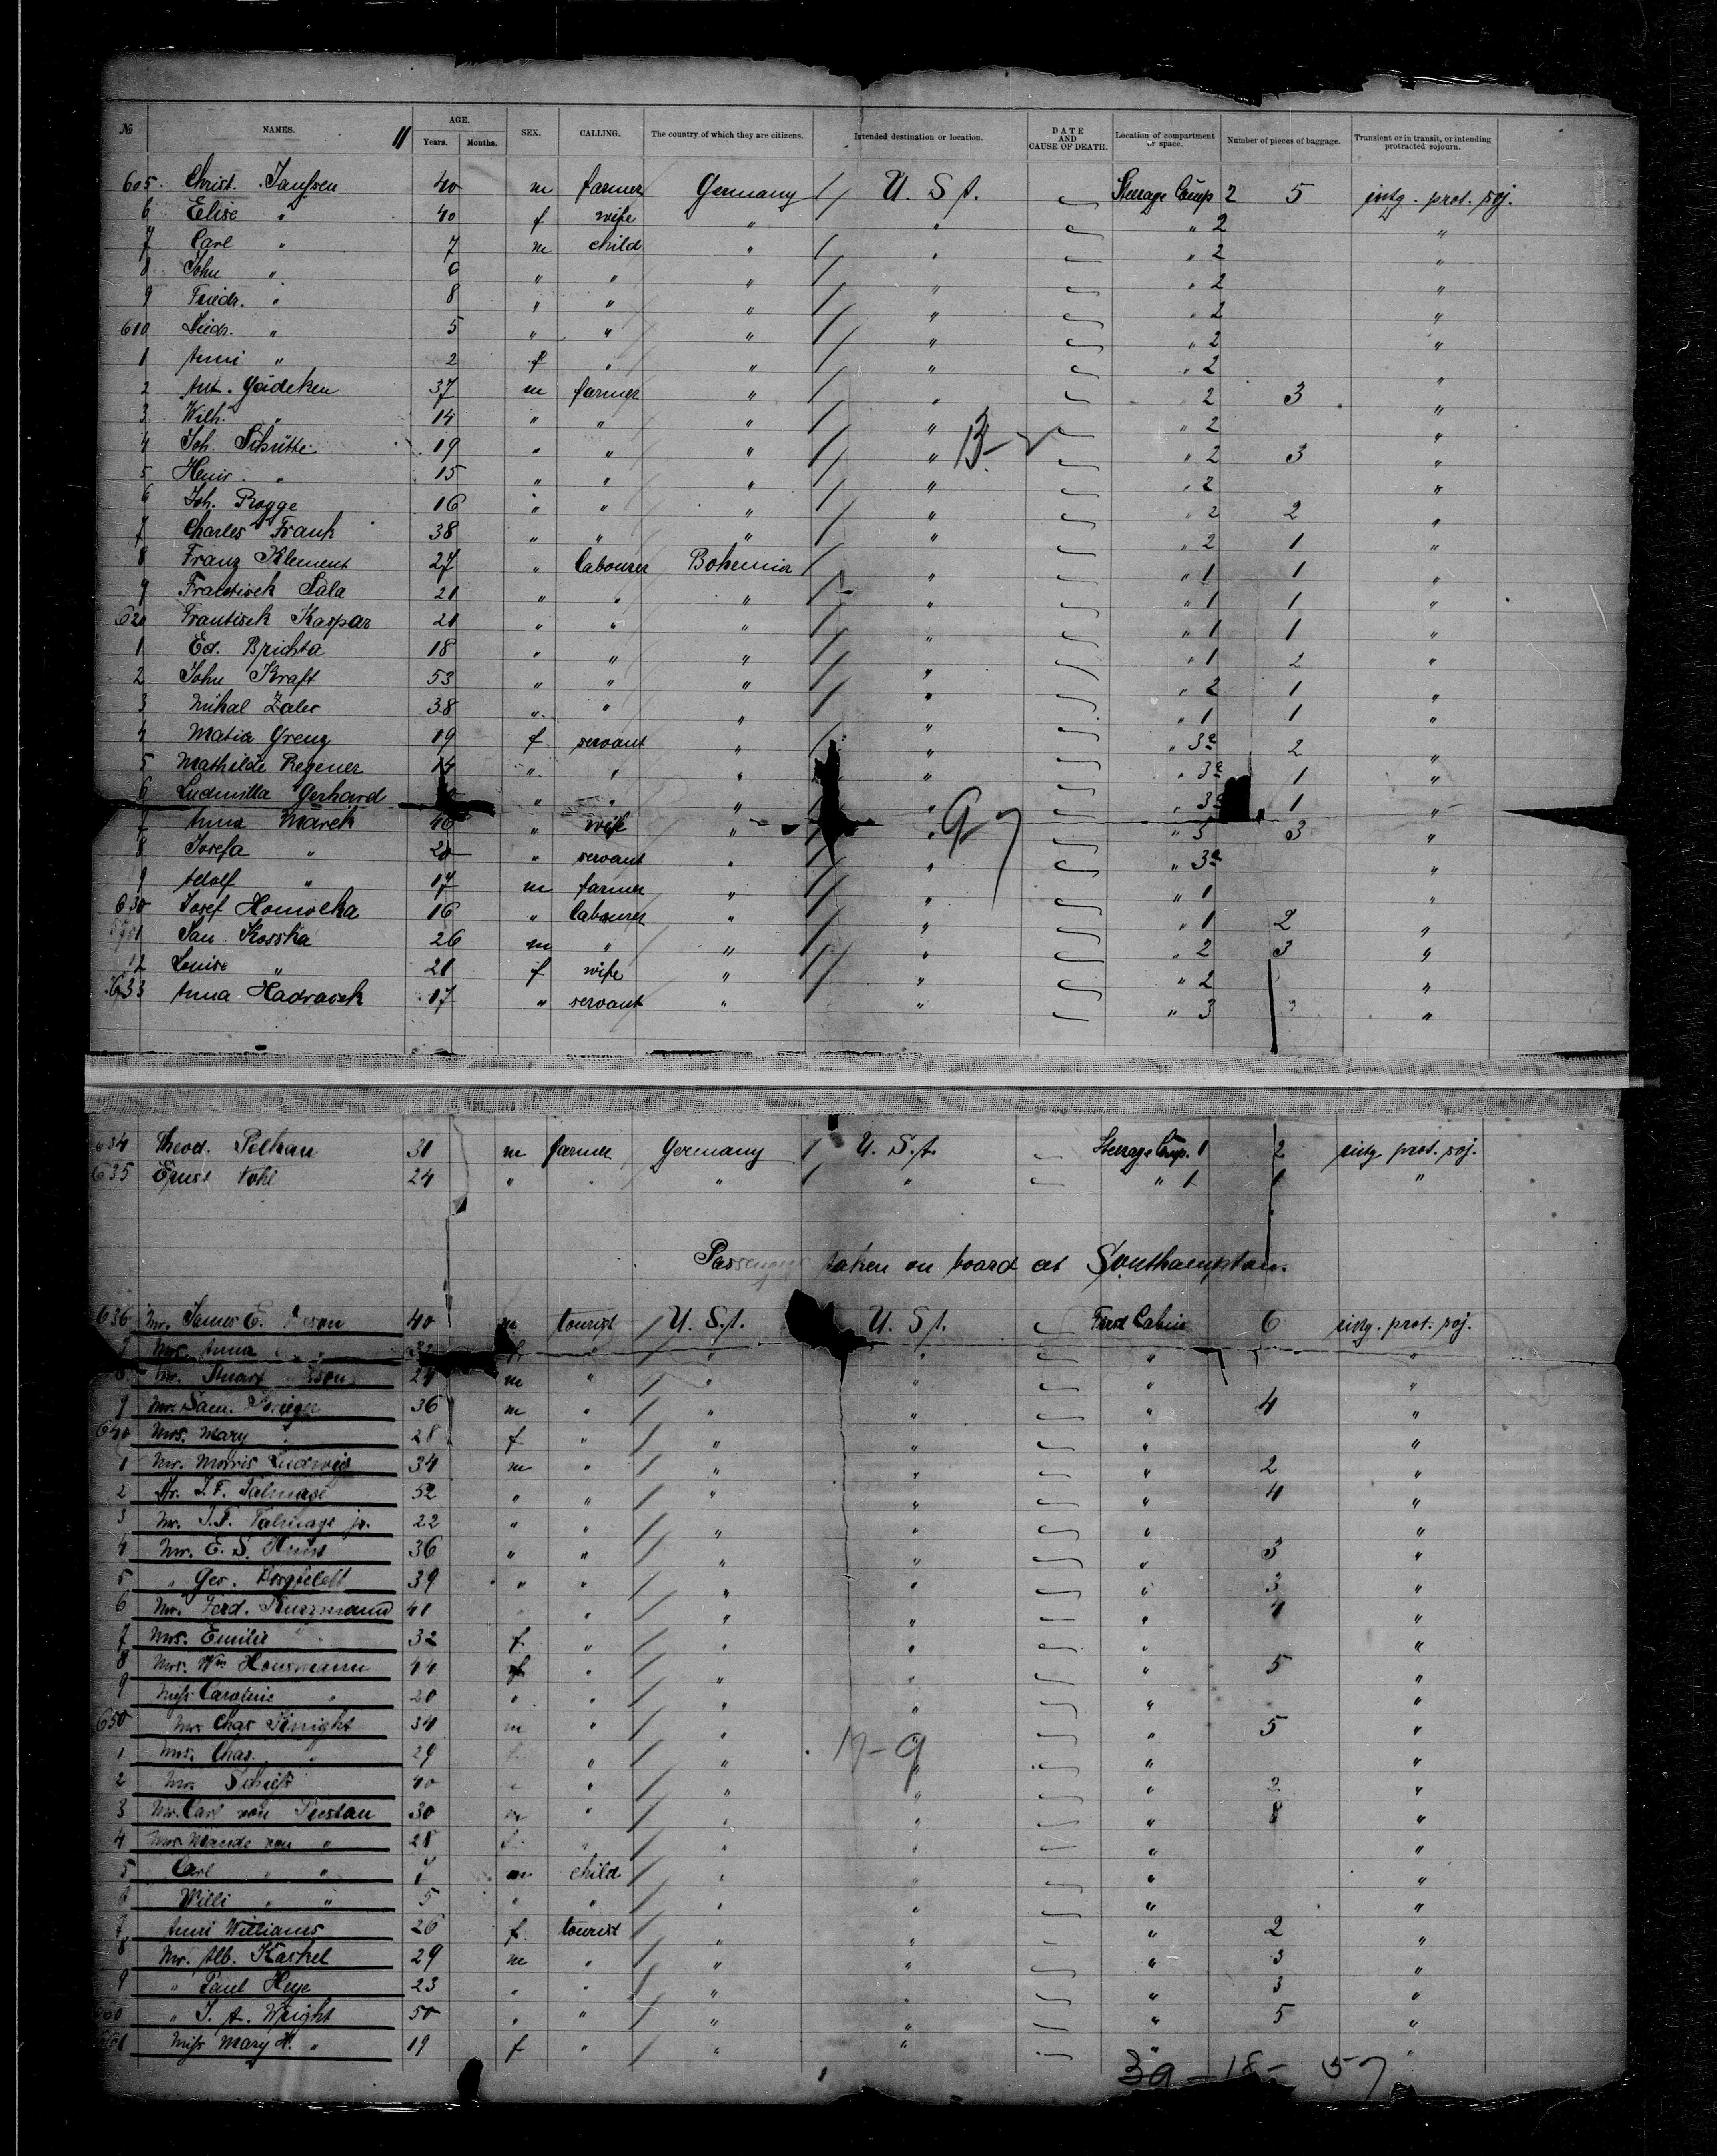 № NAMES. 11 AGE. Years. Months. SEX. CALLING. The country of which they are citizens. Intended destination or location. DATE AND CAUSE OF DEATH. Location of compartment or space. Number of pieces of baggage. Transient or in transit, or intending protracted sojourn.
605 Christ. Janssen 40 m farmer Germany U. S A. Steerage Comp 2 5 intg. prot. soj.
6 Elise " 40 f wife " " " 2 "
7 Carl " 7 m child " " " 2 "
8 John " 6 " " " " " 2 "
9 Friedr. " 8 " " " " " 2 "
610 Diedr. " 5 " " " " " 2 "
1 Anni " 2 f " " " " 2 "
2 Ant. Gädeken 37 m farmer " " 2 3 "
3 Wilh. " 14 " " " " " 2 "
4 Joh. Schütte 19 " " " " " 2 3 "
5 Heinr. " 15 " " " " " 2 "
6 Joh. Rogge 16 " " " " " 2 2 "
7 Charles Frank 38 " " " " " 2 1 "
8 Franz Klement 27 " labourer Bohemia " " 1 1 "
9 Frantisek Sala 21 " " " " " 1 1 "
620 Frantisek Kaspar 21 " " " " " 1 1 "
1 Ed. Brichta 18 " " " " " 1 2 "
2 John Kraft 53 " " " " " 2 1 "
3 Mihal Zaler 38 " " " " " 1 1 "
4 Matia Grenz 19 f servant " " " 3a 2 "
5 Mathilde Regener 14 " " " " " 3a 1 "
6 Ludmilla Gerhard " " " " " 3a 1 "
7 Anna Marek 46 " wife " " " 3 3 "
8 Josefa " 20 " servant " " " 3a "
9 Adolf " 17 m farmer " " " 1 "
630 Josef Homolka 16 " labourer " " " 1 2 "
1 Jan Kosska 26 m " " " " 2 3 "
2 Louise " 21 f wife " " " 2 "
633 Anna Hadracek 17 " servant " " " 3 "
634 Theod. Pelkau 31 m farmer Germany U. S. A. Steerage Comp. 1 2 intg. prot. soj.
635 Ernst Vohl 24 " " " " " 1 1 "
Passengers taken on board at Southampton.
636 Mr. James E. 40 m tourist U. S. A. U. S A. First Cabin 6 intg. prot. soj.
7 Mrs. Anna " 32 f " " " " "
8 Mr. Stuart 24 m " " " " "
9 Mr. Sam. 36 m " " " " 4 "
640 Mrs. Mary " 28 f " " " " "
1 Mr. Morris Ludwig 34 m " " " " 2 "
2 Dr. T. F. Talmage 52 " " " " " 4 "
3 Mr. T. F. Talmage jr. 22 " " " " " "
4 Mr. E. S. 36 " " " " " 3 "
5 " Geo. Borgfeldt 39 " " " " " 3 "
6 Mr. Ferd. Kurzmann 41 " " " " 4 "
7 Mrs. Emilie 32 f " " " " "
8 Mrs. Wm Housmann 44 f " " " " 5 "
9 Miss Caroline " 20 " " " " " "
650 Mr. Chas Knight 34 m " " " " 5 "
1 Mrs. Chas. " 29 f " " " " "
2 Mr. 40 " " " " 2 "
3 Mr. Carl von Pustau 30 m " " " " 8 "
4 Mrs. Maude von " 28 f " " " " "
5 Carl " " 7 m child " " " "
6 Willi " " 5 " " " " " "
7 Anni Williams 26 f tourist " " " 2 "
8 Mr. Alb. Kaskel 29 m " " " " 3 "
9 " Paul Heye 23 " " " " " 3 "
660 " J. A. Wright 50 " " " " " 5 "
661 Miss Mary H. " 19 f " " " " "
39 - 18 - 57